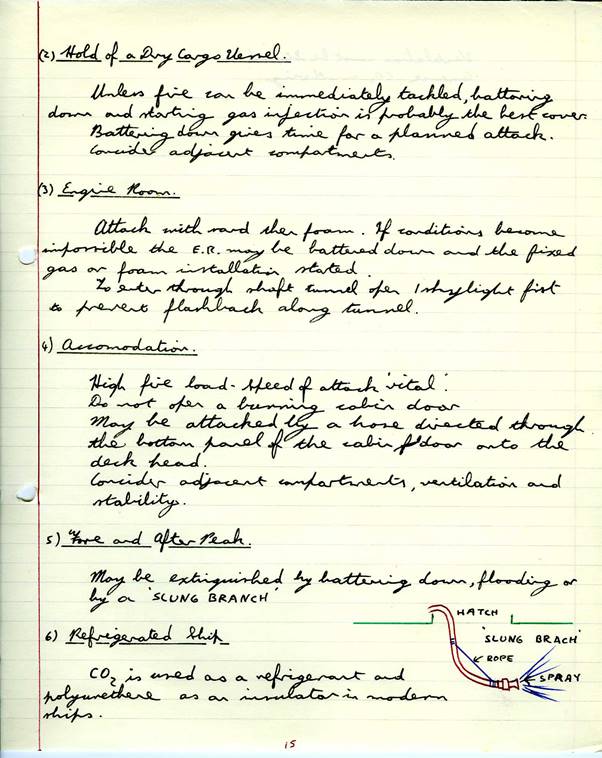 (2) Hold of a Dry Cargo Vessel.
Unless fire can be immediately tackled, battering
down and starting gas injection is probably the best cover.
Battering down gives time for a planned attack.
Consider adjacent compartments.
(3) Engine Room.
Attack with and then foam. If conditions become
impossible the E.R. may be battered down and the fixed
gas or foam installation started.
To enter through shaft tunnel open 1 skylight first
to prevent flashback along tunnel.
4) Accomodation.
High fire load - speed of attack 'vital'.
Do not open a burning cabin door
May be attacked by a hose directed through
the bottom panel of the cabin door onto the
deck head.
Consider adjacent compartments, ventilation and
stability.
5) Fore and After Peak.
May be extinguished by battering down, flooding or
by a 'SLUNG BRANCH'
HATCH
'SLUNG BRACH'
ROPE
SPRAY
6) Refrigerated Ship
CO₂ is used as a refrigerant and
polyurethere as an insulator in modern
ships.
15